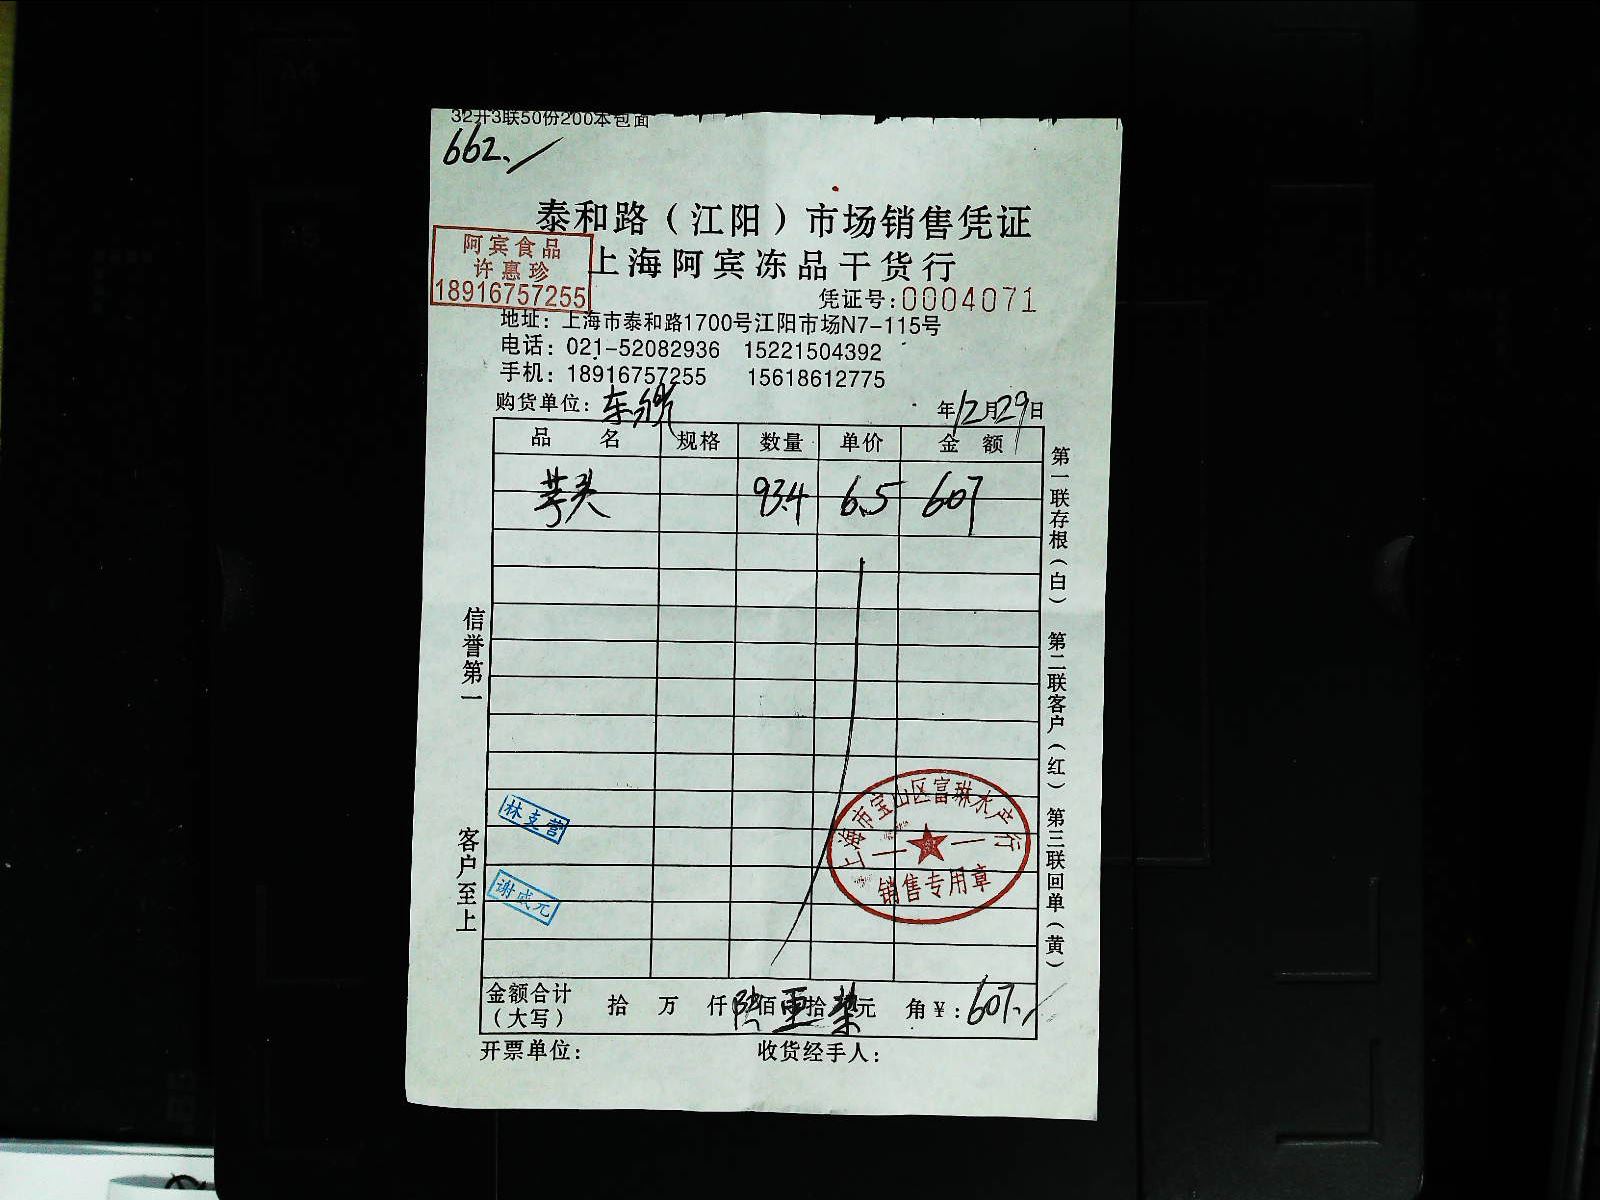 32开3联50份200本包面
662.
泰和路（江阳）市场销售凭证
上海阿宾冻品干货行
阿宾食品
许惠珍
18916757255
凭证号:0004071
地址：上海市泰和路1700号江阳市场N7-115号
电话：021-52082936 15221504392
手机：18916757255 15618612775
购货单位：
年12月29日
品 名 规格 数量 单价 金 额
芋头 93.4 6.5 607
信誉第一
客户至上
林支营
谢成元
上海市宝山区富琳水产行
销售专用章
第一联存根（白） 第二联客户（红） 第三联回单（黄）
金额合计
（大写）
拾 万 仟 陆佰零拾柒元 角¥:607.
开票单位： 收货经手人：